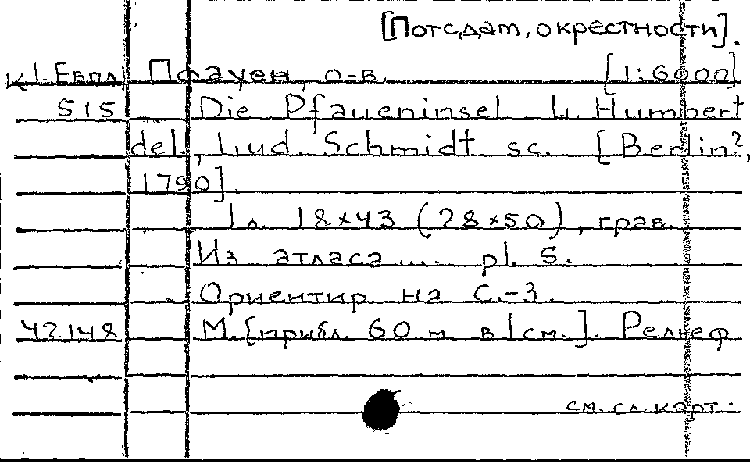 [Потсдам, окрестности].
К 1-Евпл Пфауен, о-в. [1:6000]
515 Die Pfaueninsel L. Humbert
del., Lud. Schmidt sc. [Berlin?,
1790]
1 л. 18×43 (28×50), грав.
Из атласа ... pl. 5.
Ориентир. на С.-З.
42148 М. [прибл. 60 м в 1 см.]. Рельеф
см. сл. карт.